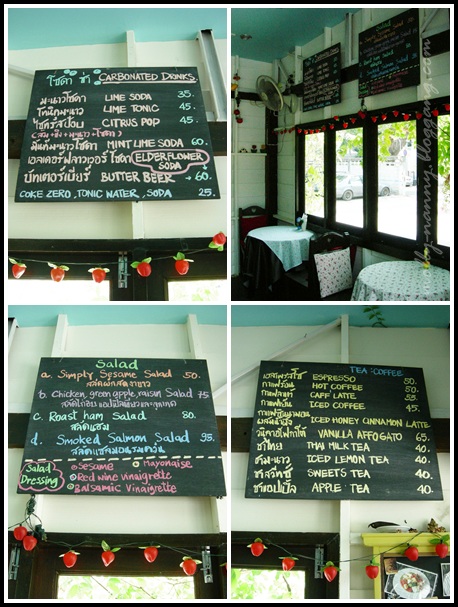 โซดา ซ่า CARBONATED DRINKS
มะนาวโซดา LIME SODA 35.
โทนิคมะนาว LIME TONIC 45.
ไซทรัสป๊อบ CITRUS POP 45.
(ส้ม+ขิง+มะนาว+โซดา)
มินท์มะนาวโซดา MINT LIME SODA 60.
เอลเดอร์ฟลาวเวอร์โซดา ELDERFLOWER SODA 60.
บัทเตอร์เบียร์ BUTTER BEER 60.
COKE ZERO, TONIC WATER, SODA 25.
Salad
a. Simply Sesame Salad 50.
b. Chicken, green apple, raisin Salad 75
c. Roast ham Salad 80.
สลัดแฮม
d. Smoked Salmon Salad 95.
Salad Dressing
Sesame
Mayonaise
Red wine vinaigrette
Balsamic Vinaigrette
TEA : COFFEE
เอสเพรสโซ่ ESPRESSO 50.
กาแฟร้อน HOT COFFEE 50.
กาแฟลาเต้ CAFF' LATTE 55.
กาแฟเย็น ICED COFFEE 45.
ICED HONEY CINNAMON LATTE
VANILLA AFFOGATO 65.
ชาไทย THAI MILK TEA 40.
ICED LEMON TEA 40.
SWEETS TEA 40.
ชาแอปเปิ้ล APPLE TEA 40.